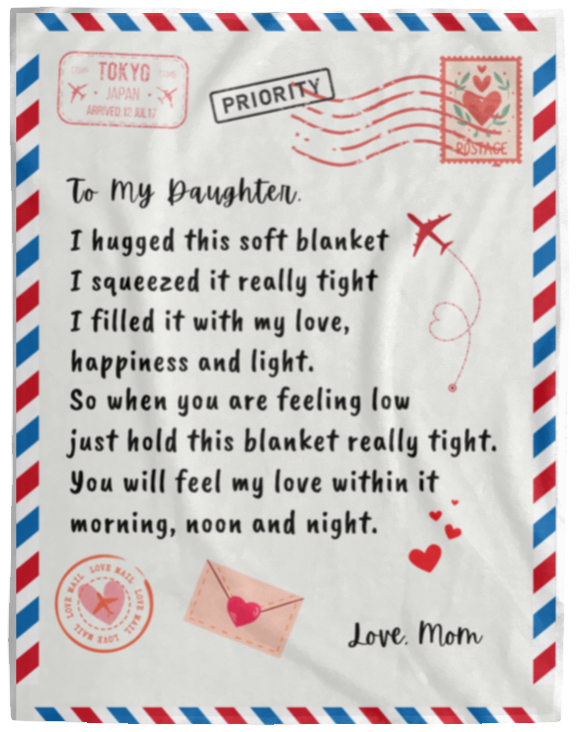 TOKYO
JAPAN
ARRIVED: 12 JUL 17
PRIORITY
POSTAGE
To My Daughter.
I hugged this soft blanket
I squeezed it really tight
I filled it with my love,
happiness and light.
So when you are feeling low
just hold this blanket really tight.
You will feel my love within it
morning, noon and night.
LOVE MAIL LOVE MAIL LOVE MAIL LOVE MAIL
Love, Mom